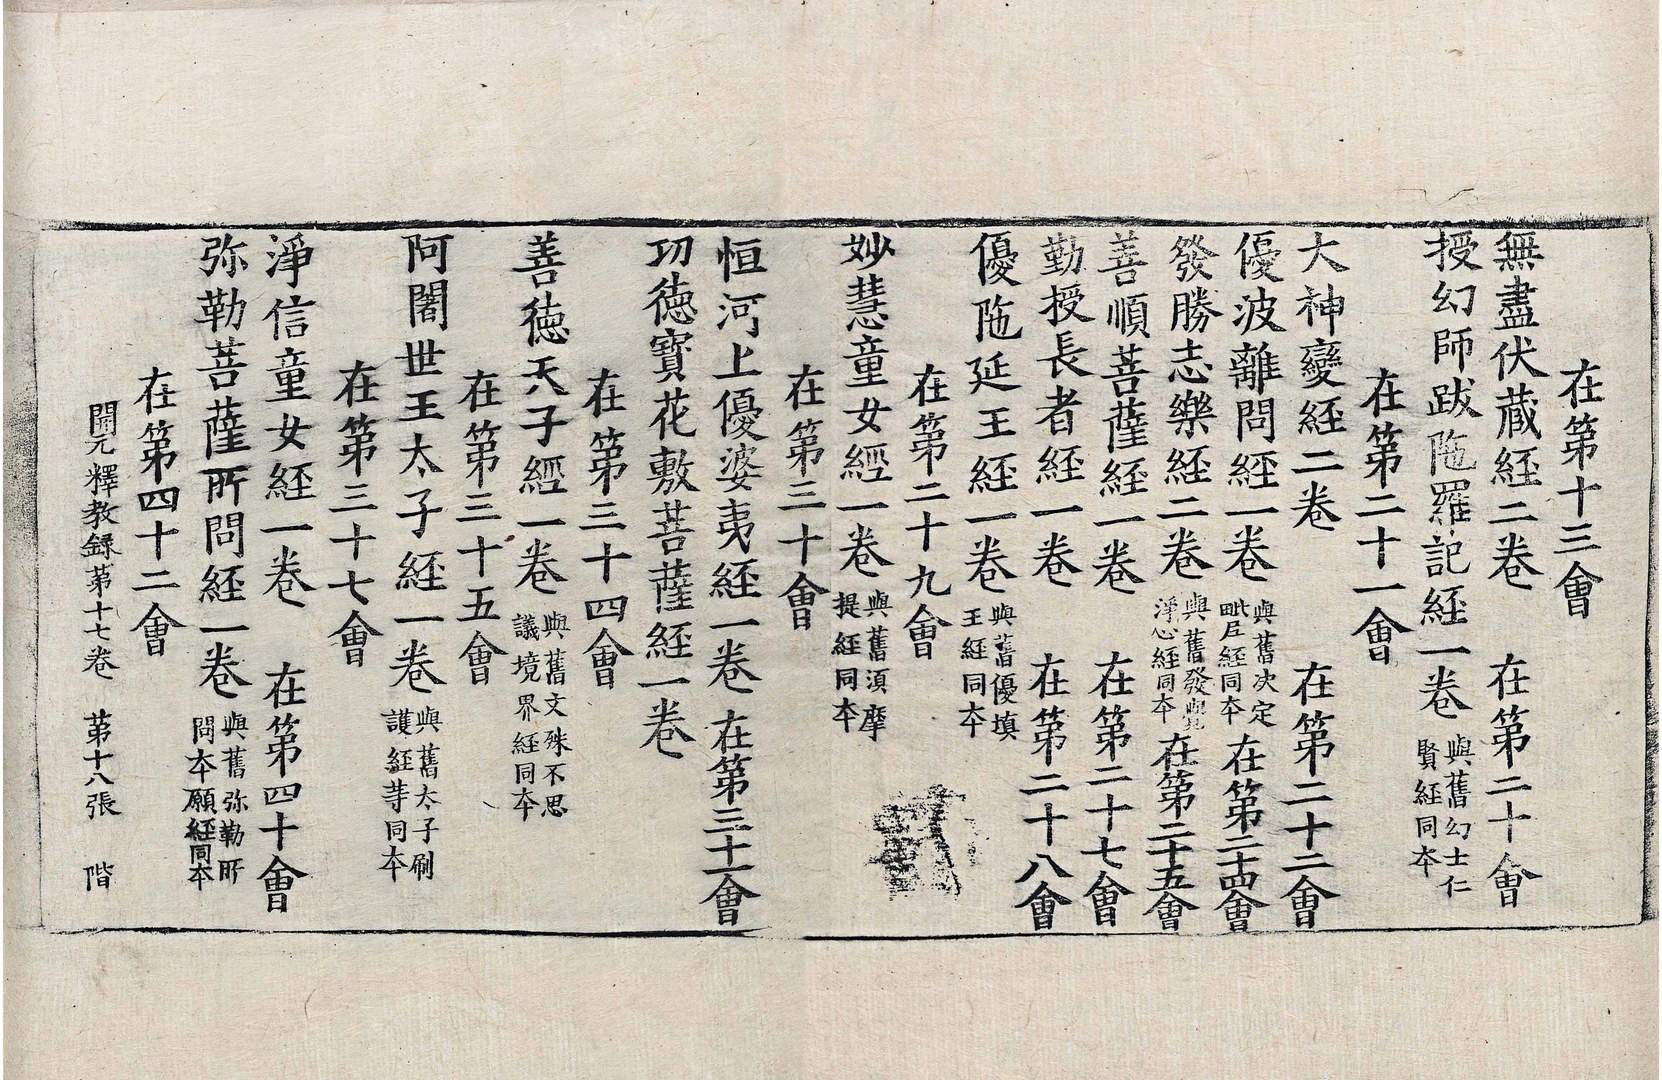 在第十三會
無盡伏藏経二卷 在第二十會
授幻師跋陁羅記経一卷 與舊幻士仁賢経同本
在第二十一會
大神變経二卷 在第二十二會
優波離問経一卷 與舊决定毗尼経同本 在第二十四會
發勝志樂経二卷 與舊發覺淨心経同本 在第二十五會
善順菩薩経一卷 在第二十七會
勤授長者経一卷 在第二十八會
優陁延王経一卷 與舊優填王経同本
在第二十九會
妙慧童女經一卷 與舊湏摩提経同本
在第三十會
恒河上優婆夷経一卷 在第三十一會
功德寶花敷菩薩経一卷
在第三十四會
善德天子經一卷 與舊文殊不思議境界経同本
在第三十五會
阿闍世王太子経一卷 與舊太子刷護経等同本
在第三十七會
淨信童女経一卷 在第四十會
弥勒菩薩所問経一卷 與舊弥勒所問本願経同本
在第四十二會
開元釋教録苐十七卷 苐十八張 階